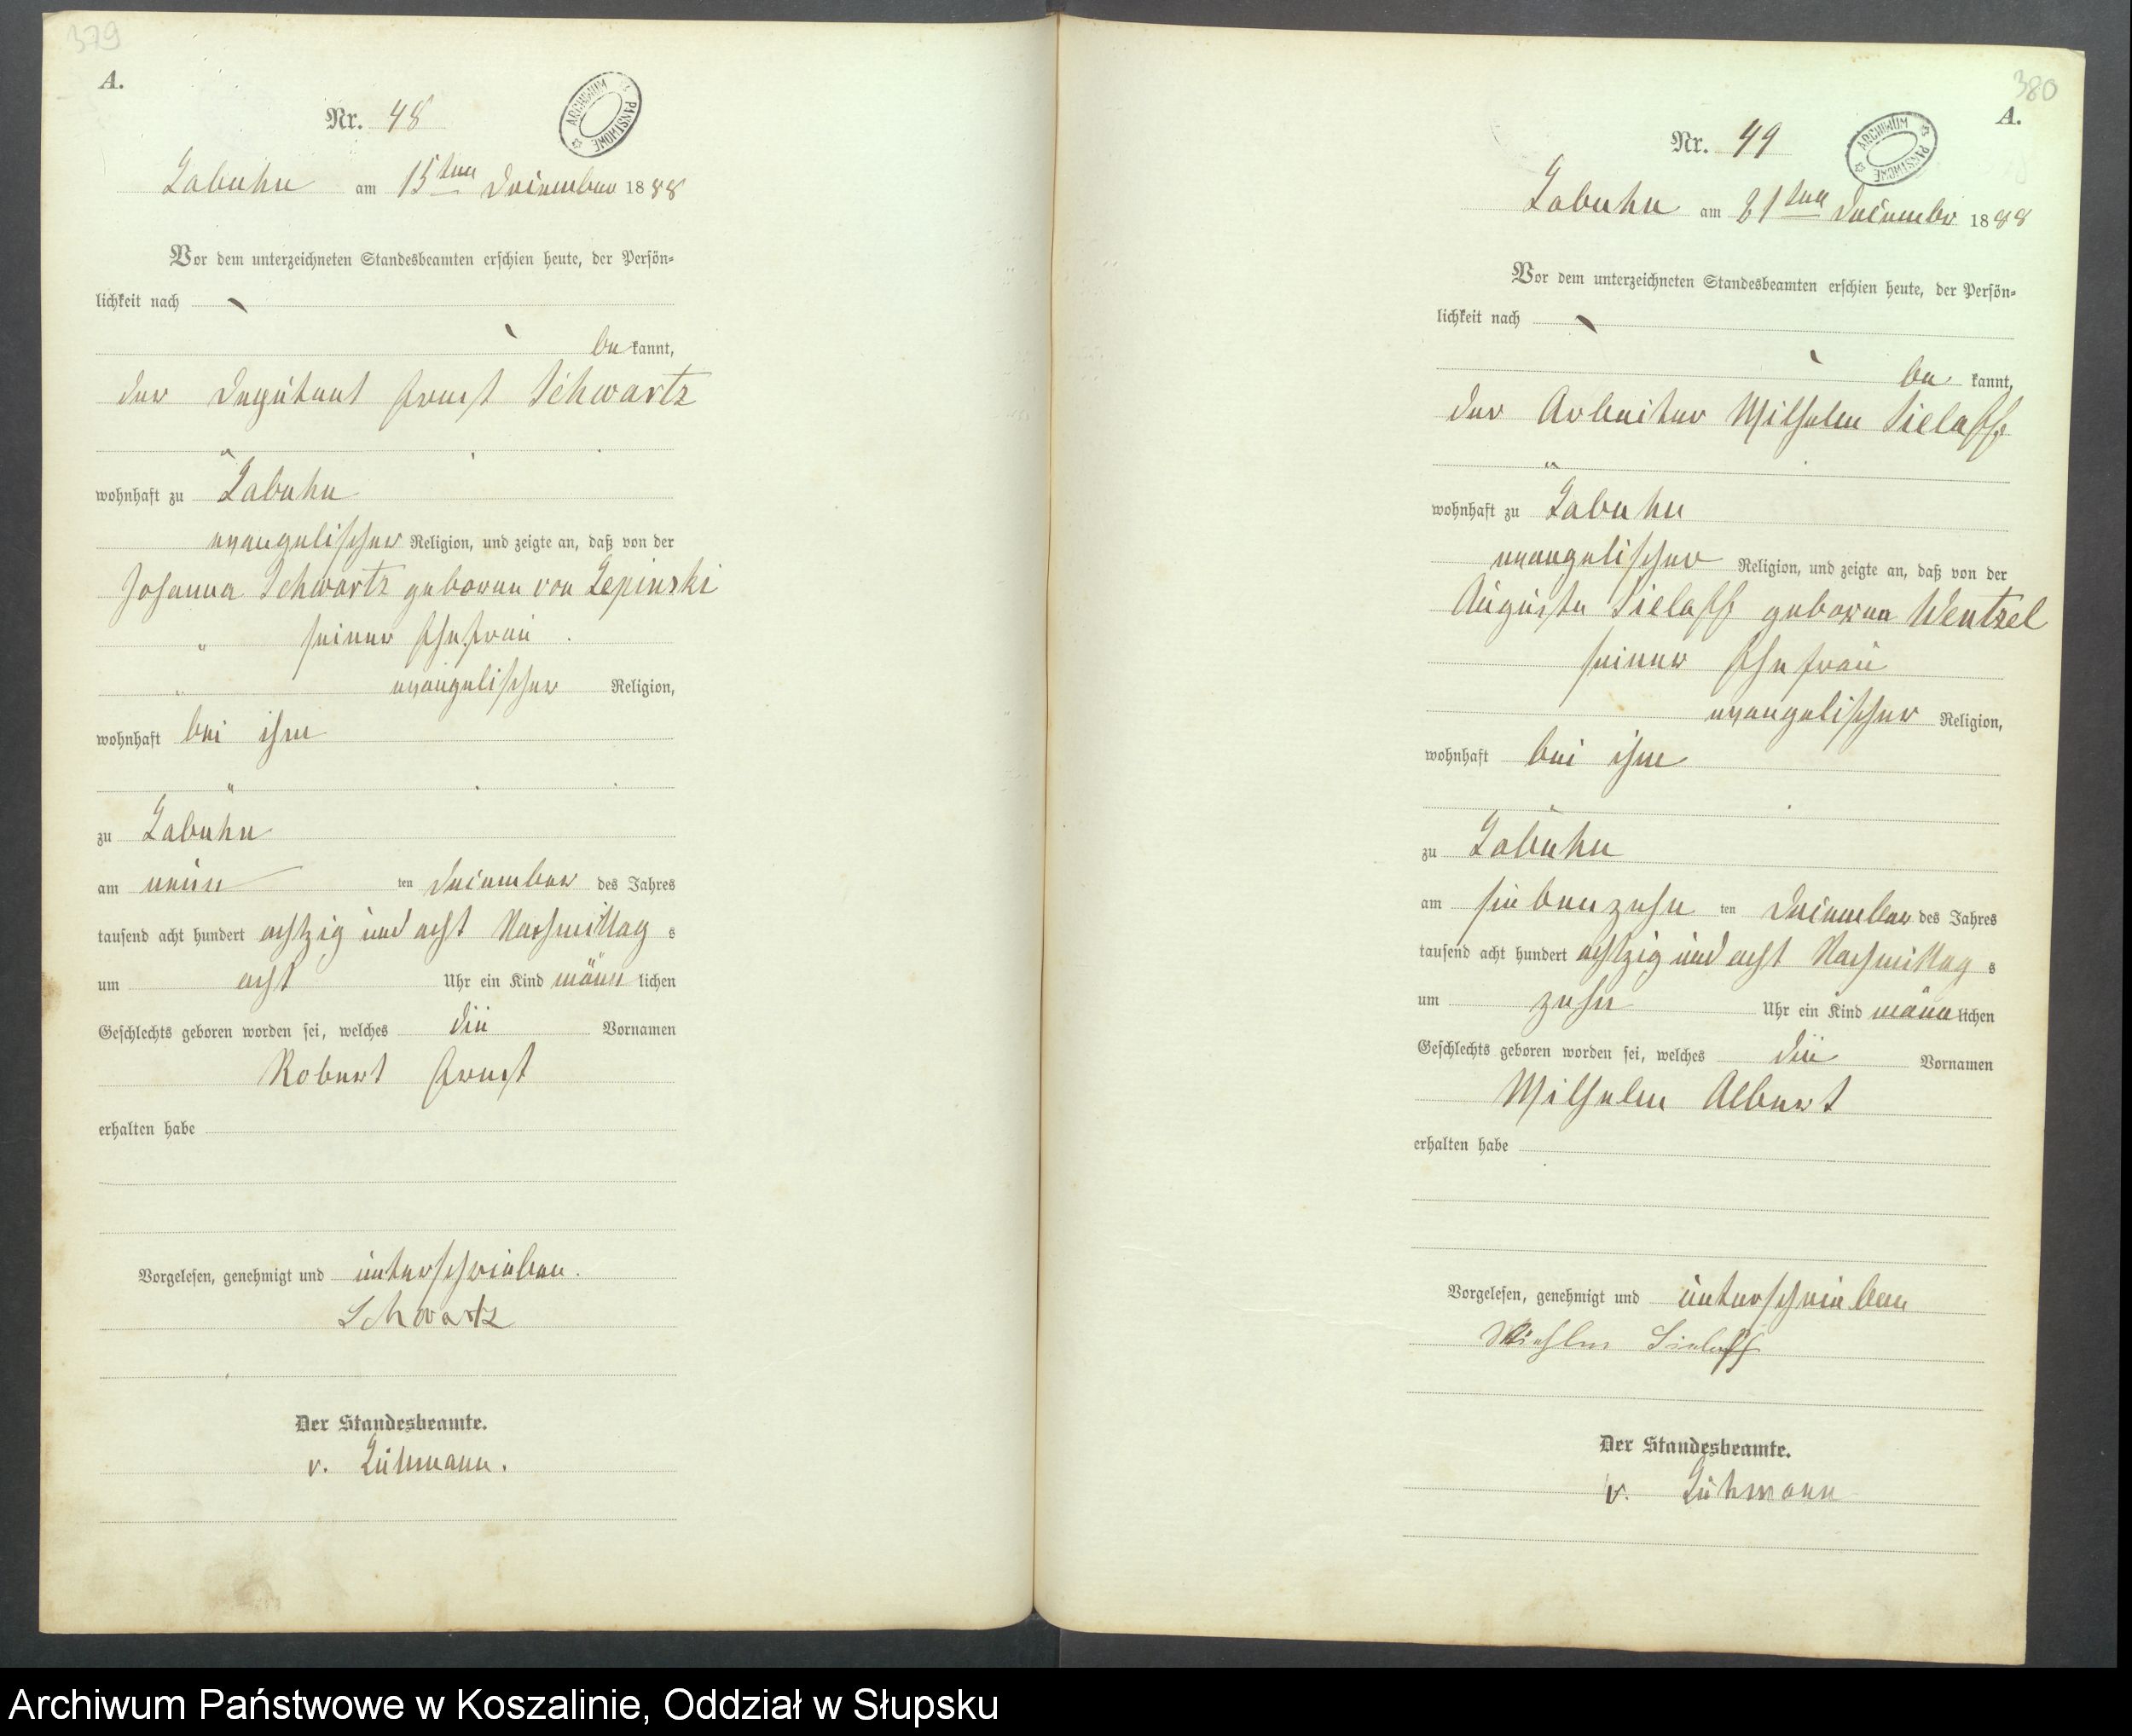 379
A.
Nr. 48
ARCHIWUM PAŃSTWOWE
Labuhn am 15ten December 1888
Vor dem unterzeichneten Standesbeamten erschien heute, der Persön=
lichkeit nach
be kannt,
der Deputant Ernst Schwartz
wohnhaft zu Labuhn
evangelischer Religion, und zeigte an, daß von der
Johanna Schwartz geborene von Lepinski
seiner Ehefrau
evangelischer Religion,
wohnhaft bei ihm
zu Labuhn
am neun ten December des Jahres
tausend acht hundert achtzig und acht Nachmittag s
um acht Uhr ein Kind männ lichen
Geschlechts geboren worden sei, welches die Vornamen
Robert Ernst
erhalten habe
Vorgelesen, genehmigt und unterschrieben.
Schwartz
Der Standesbeamte.
v. Lühmann.
380
A.
Nr. 49
ARCHIWUM PAŃSTWOWE
Labuhn am 21ten December 1888
Vor dem unterzeichneten Standesbeamten erschien heute, der Persön=
lichkeit nach
be kannt,
der Arbeiter Wilhelm Sielaff
wohnhaft zu Labuhn
evangelischer Religion, und zeigte an, daß von der
Auguste Sielaff geborene Wentzel
seiner Ehefrau
evangelischer Religion,
wohnhaft bei ihm
zu Labuhn
am siebenzehn ten December des Jahres
tausend acht hundert achtzig und acht Nachmittag s
um zehn Uhr ein Kind männ lichen
Geschlechts geboren worden sei, welches die Vornamen
Wilhelm Albert
erhalten habe
Vorgelesen, genehmigt und unterschrieben
Sielaff
Der Standesbeamte.
v. Lühmann
Archiwum Państwowe w Koszalinie, Oddział w Słupsku